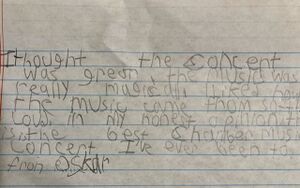 I thought the Concert
was green the music was
really magical, I liked how
the music came from
low in my honest opinion th
is the best Chamber Music
Concert I've ever been to.
from Oskar